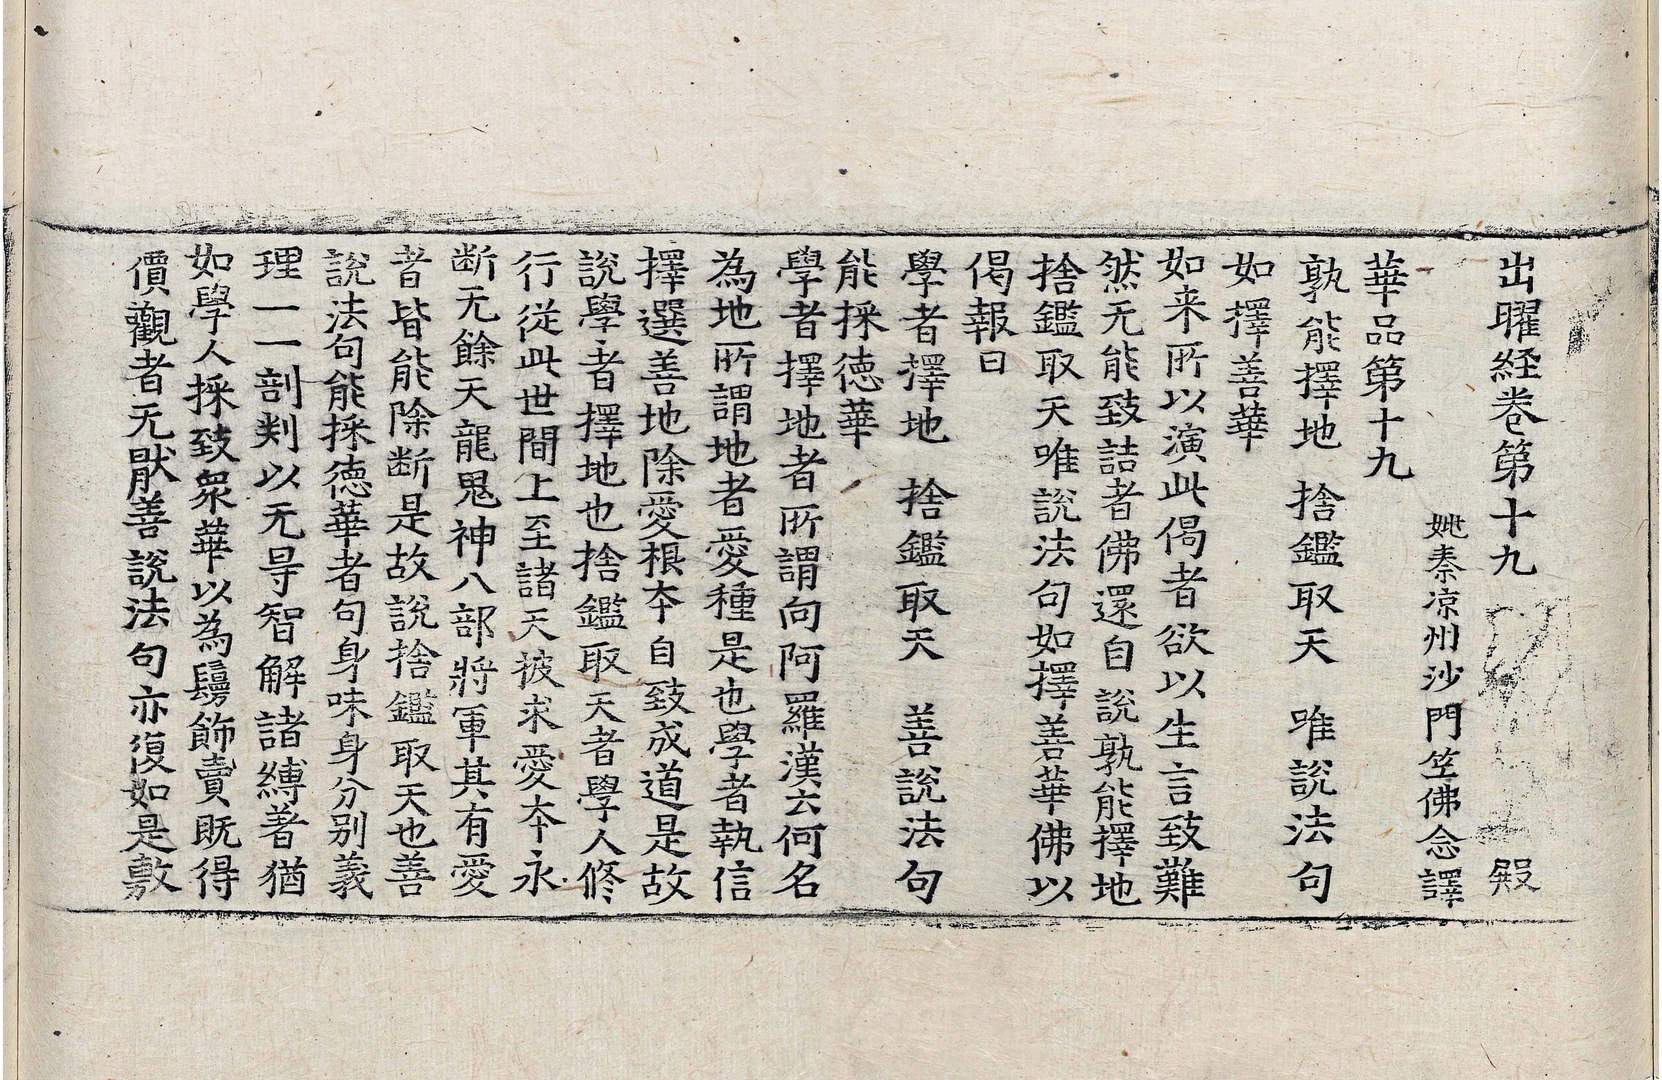 出曜経卷第十九 殿
姚秦凉州沙門笁佛念譯
華品第十九
孰能擇地 捨鑑取天 唯說法句
如擇善華
如来所以演此偈者欲以生言致難
然无能致詰者佛還自說孰能擇地
捨鑑取天唯說法句如擇善華佛以
偈報曰
學者擇地 捨鑑取天 善說法句
能採德華
學者擇地者所謂向阿羅漢云何名
為地所謂地者愛種是也學者執信
擇選善地除愛根夲自致成道是故
說學者擇地也捨鑑取天者學人修
行從此世間上至諸天披求愛夲永
断无餘天龍鬼神八部將軍其有愛
者皆能除断是故說捨鑑取天也善
說法句能採德華者句身味身分别義
理一一剖判以无㝵智解諸縛著猶
如學人採致衆華以為鬘飾賣既得
價觀者无猒善說法句亦復如是敷